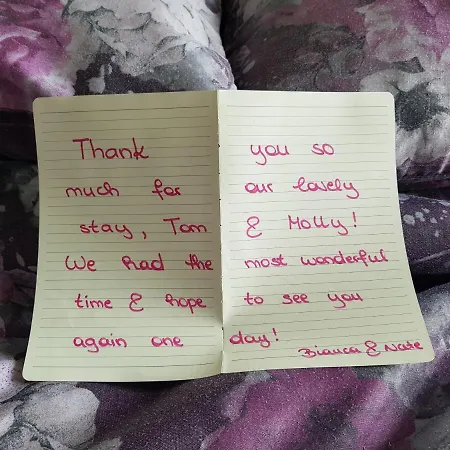 Thank you so
much for our lovely
stay, Tom & Molly!
We had the most wonderful
time & hope to see you
again one day!
Bianca & Nate